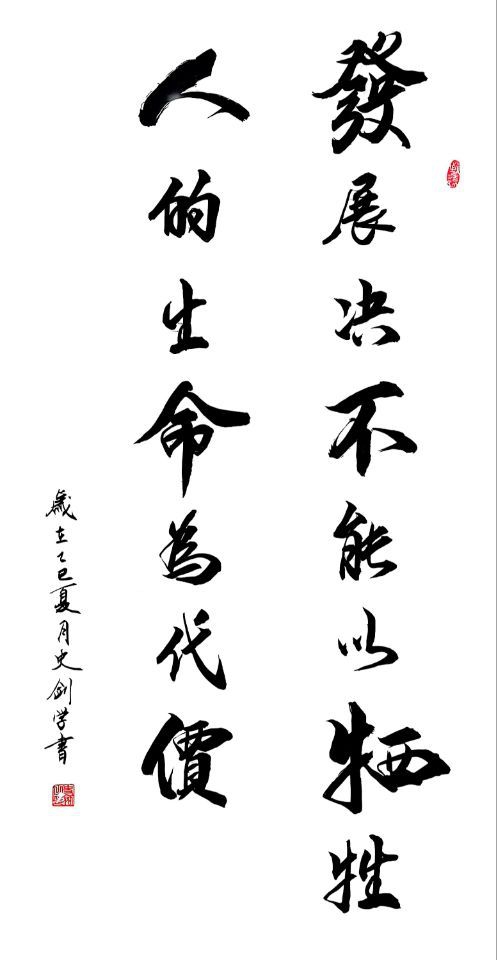 發展决不能以牺牲
人的生命為代價
歲在乙巳夏月史劍学書